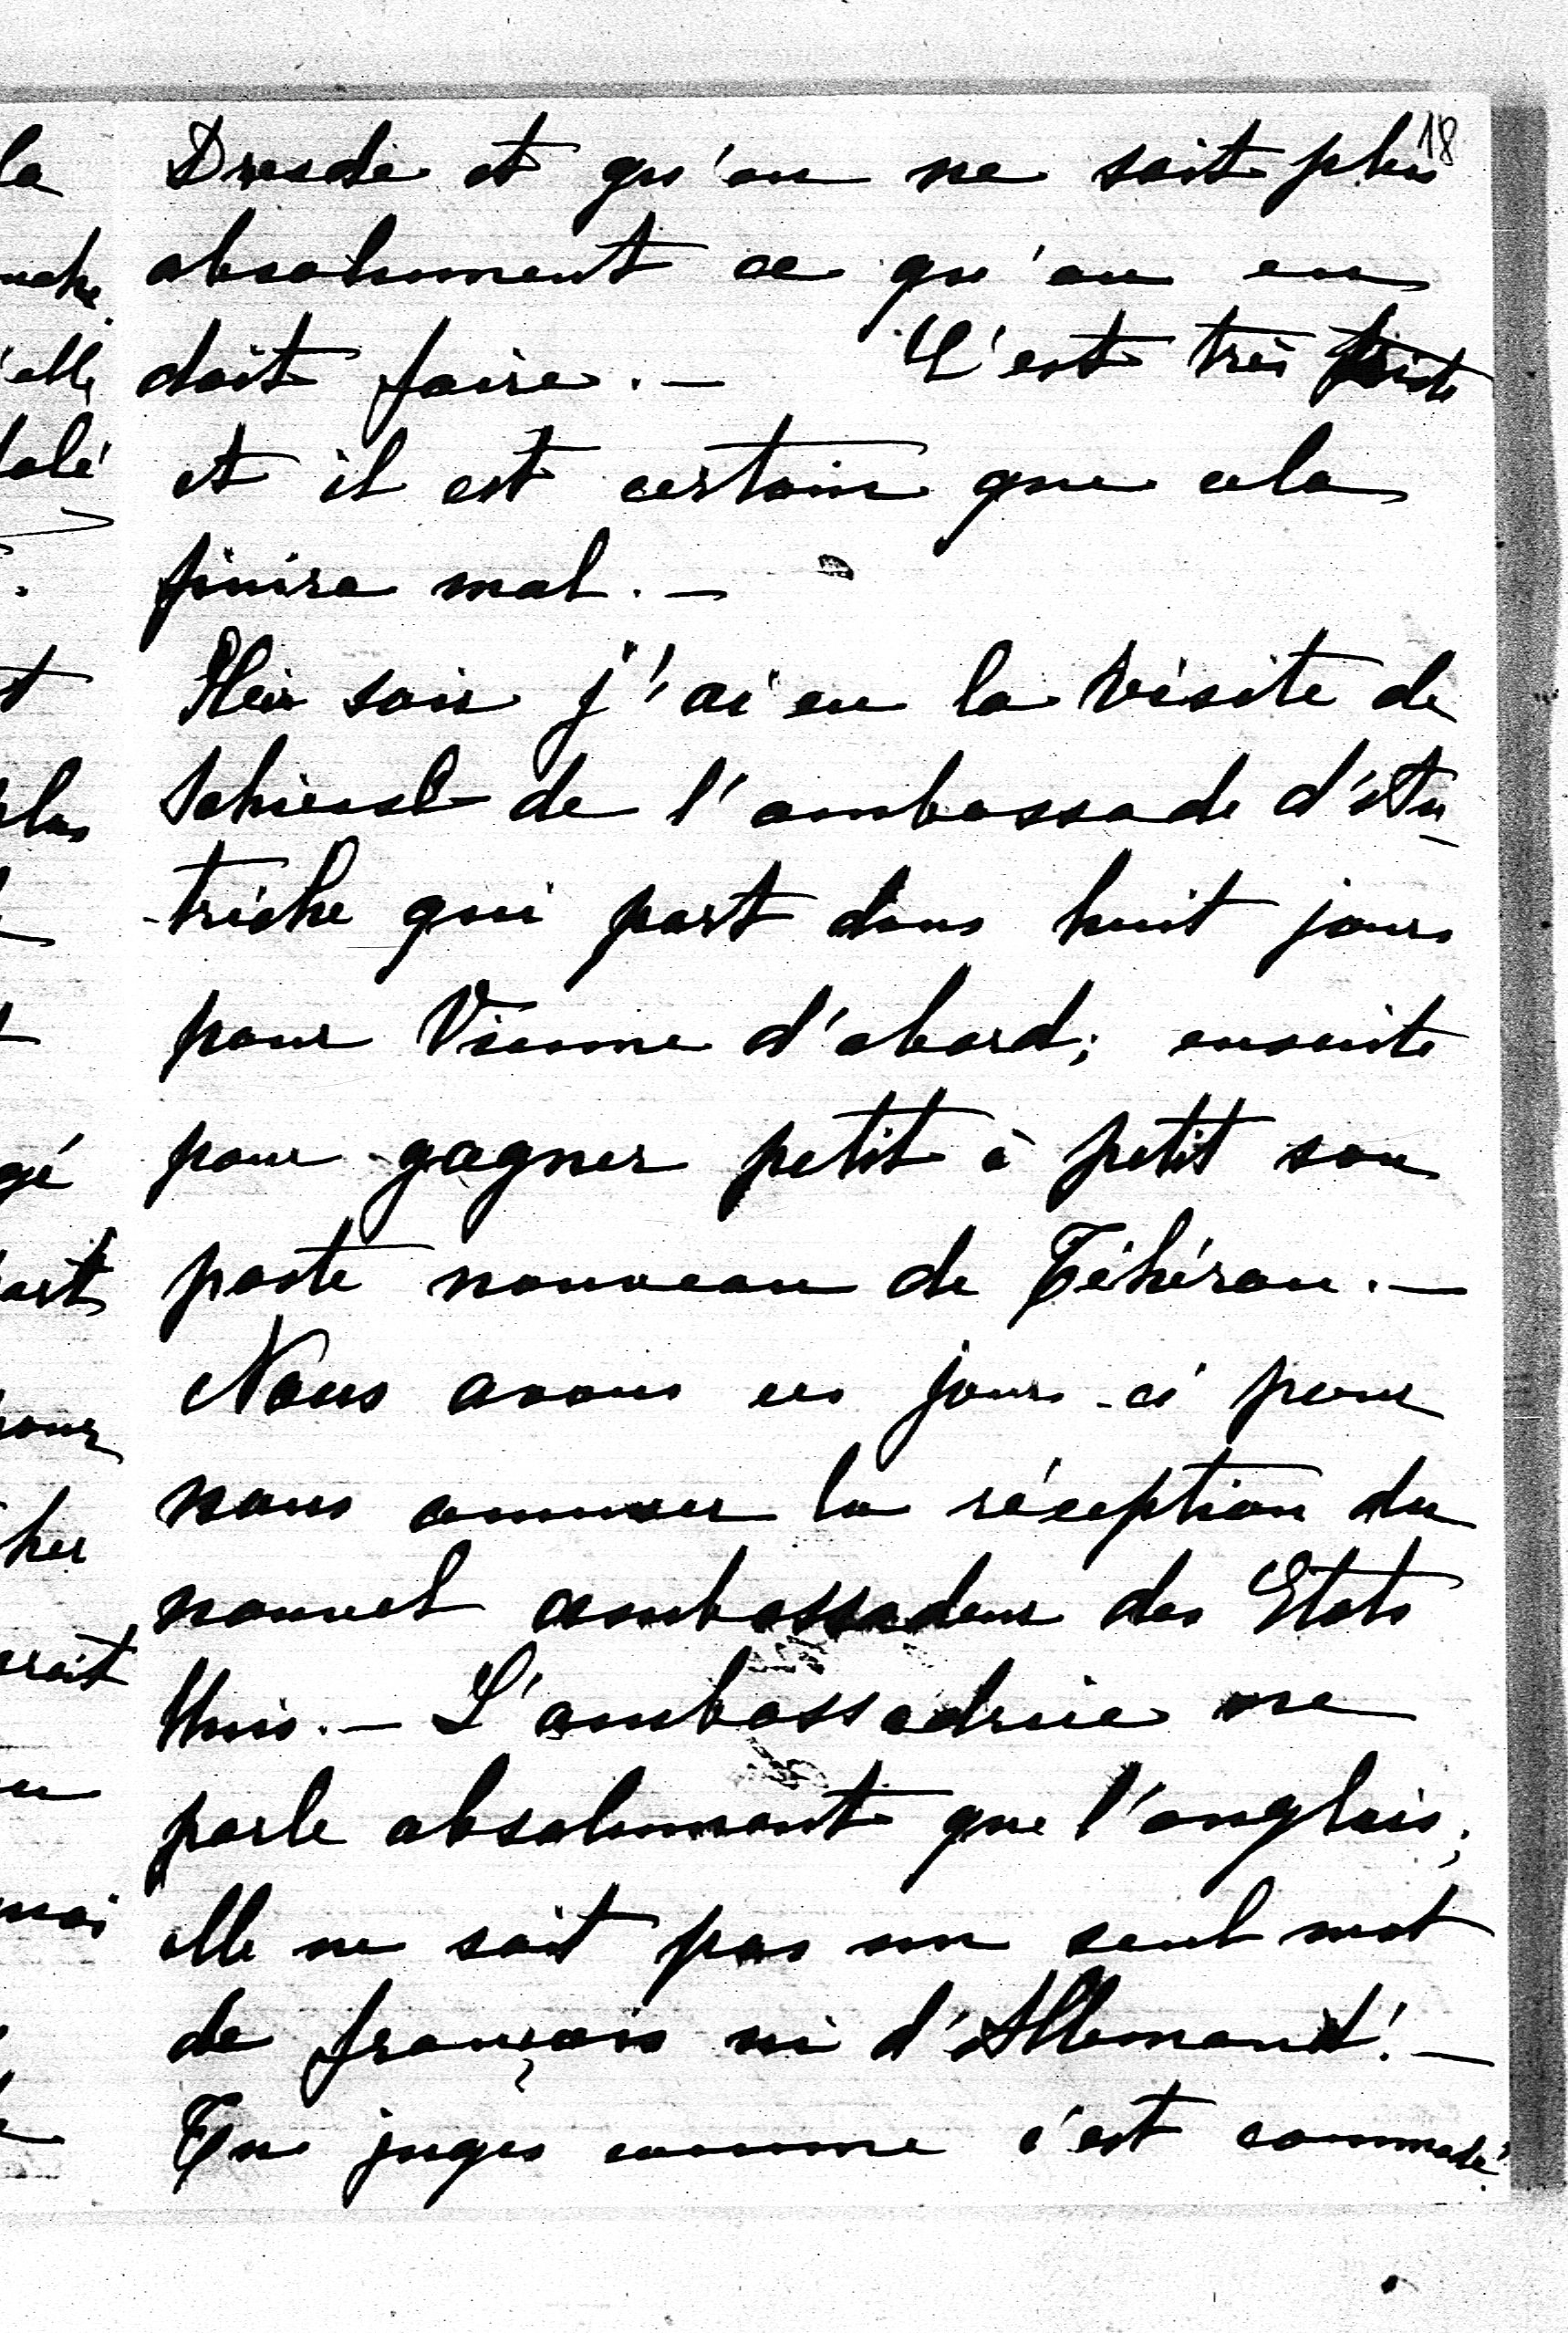 18
Dresde et qu'on ne sait plus
absolument ce qu'on en
doit faire. — C'est très triste
et il est certain que cela
finira mal. —
Hier soir j'ai eu la visite de
Schiessl de l'ambassade d'Au-
-triche qui part dans huit jours
pour Vienne d'abord; ensuite
pour gagner petit à petit son
poste nouveau de Téhéran. —
Nous avons ces jours-ci pour
nous amuser la réception du
nouvel ambassadeur des Etats
Unis. — L'ambassadrice ne
parle absolument que l'anglais;
elle ne sait pas un seul mot
de français ni d'Allemand! —
Tu juges comme c'est commode!